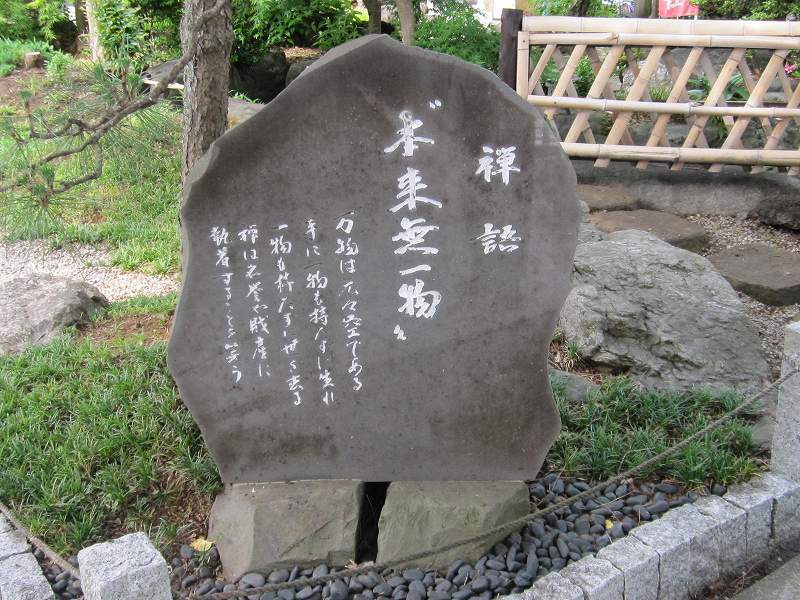 禅語
"本来無一物"
万物は元々空である
手に一物も持たずに生れ
一物も持たずに世を去る
禅は名誉や財産に
執着することを笑う